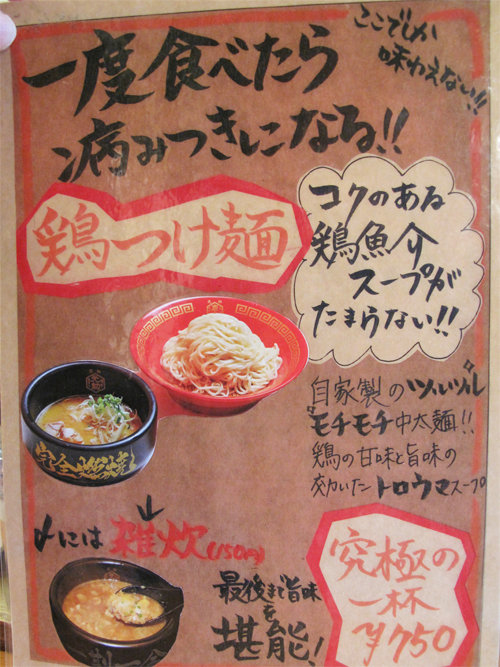 ここでしか
味わえない!!
一度食べたら
病みつきになる!!
鶏つけ麺
コクのある
鶏魚介
スープが
たまらない!!
自家製のツルツル
モチモチ中太麺!!
鶏の甘味と旨味の
効いたトロウマスープ
完全燃焼
〆には雑炊(150円)
最後まで旨味
を
堪能!
究極の
一杯
¥750